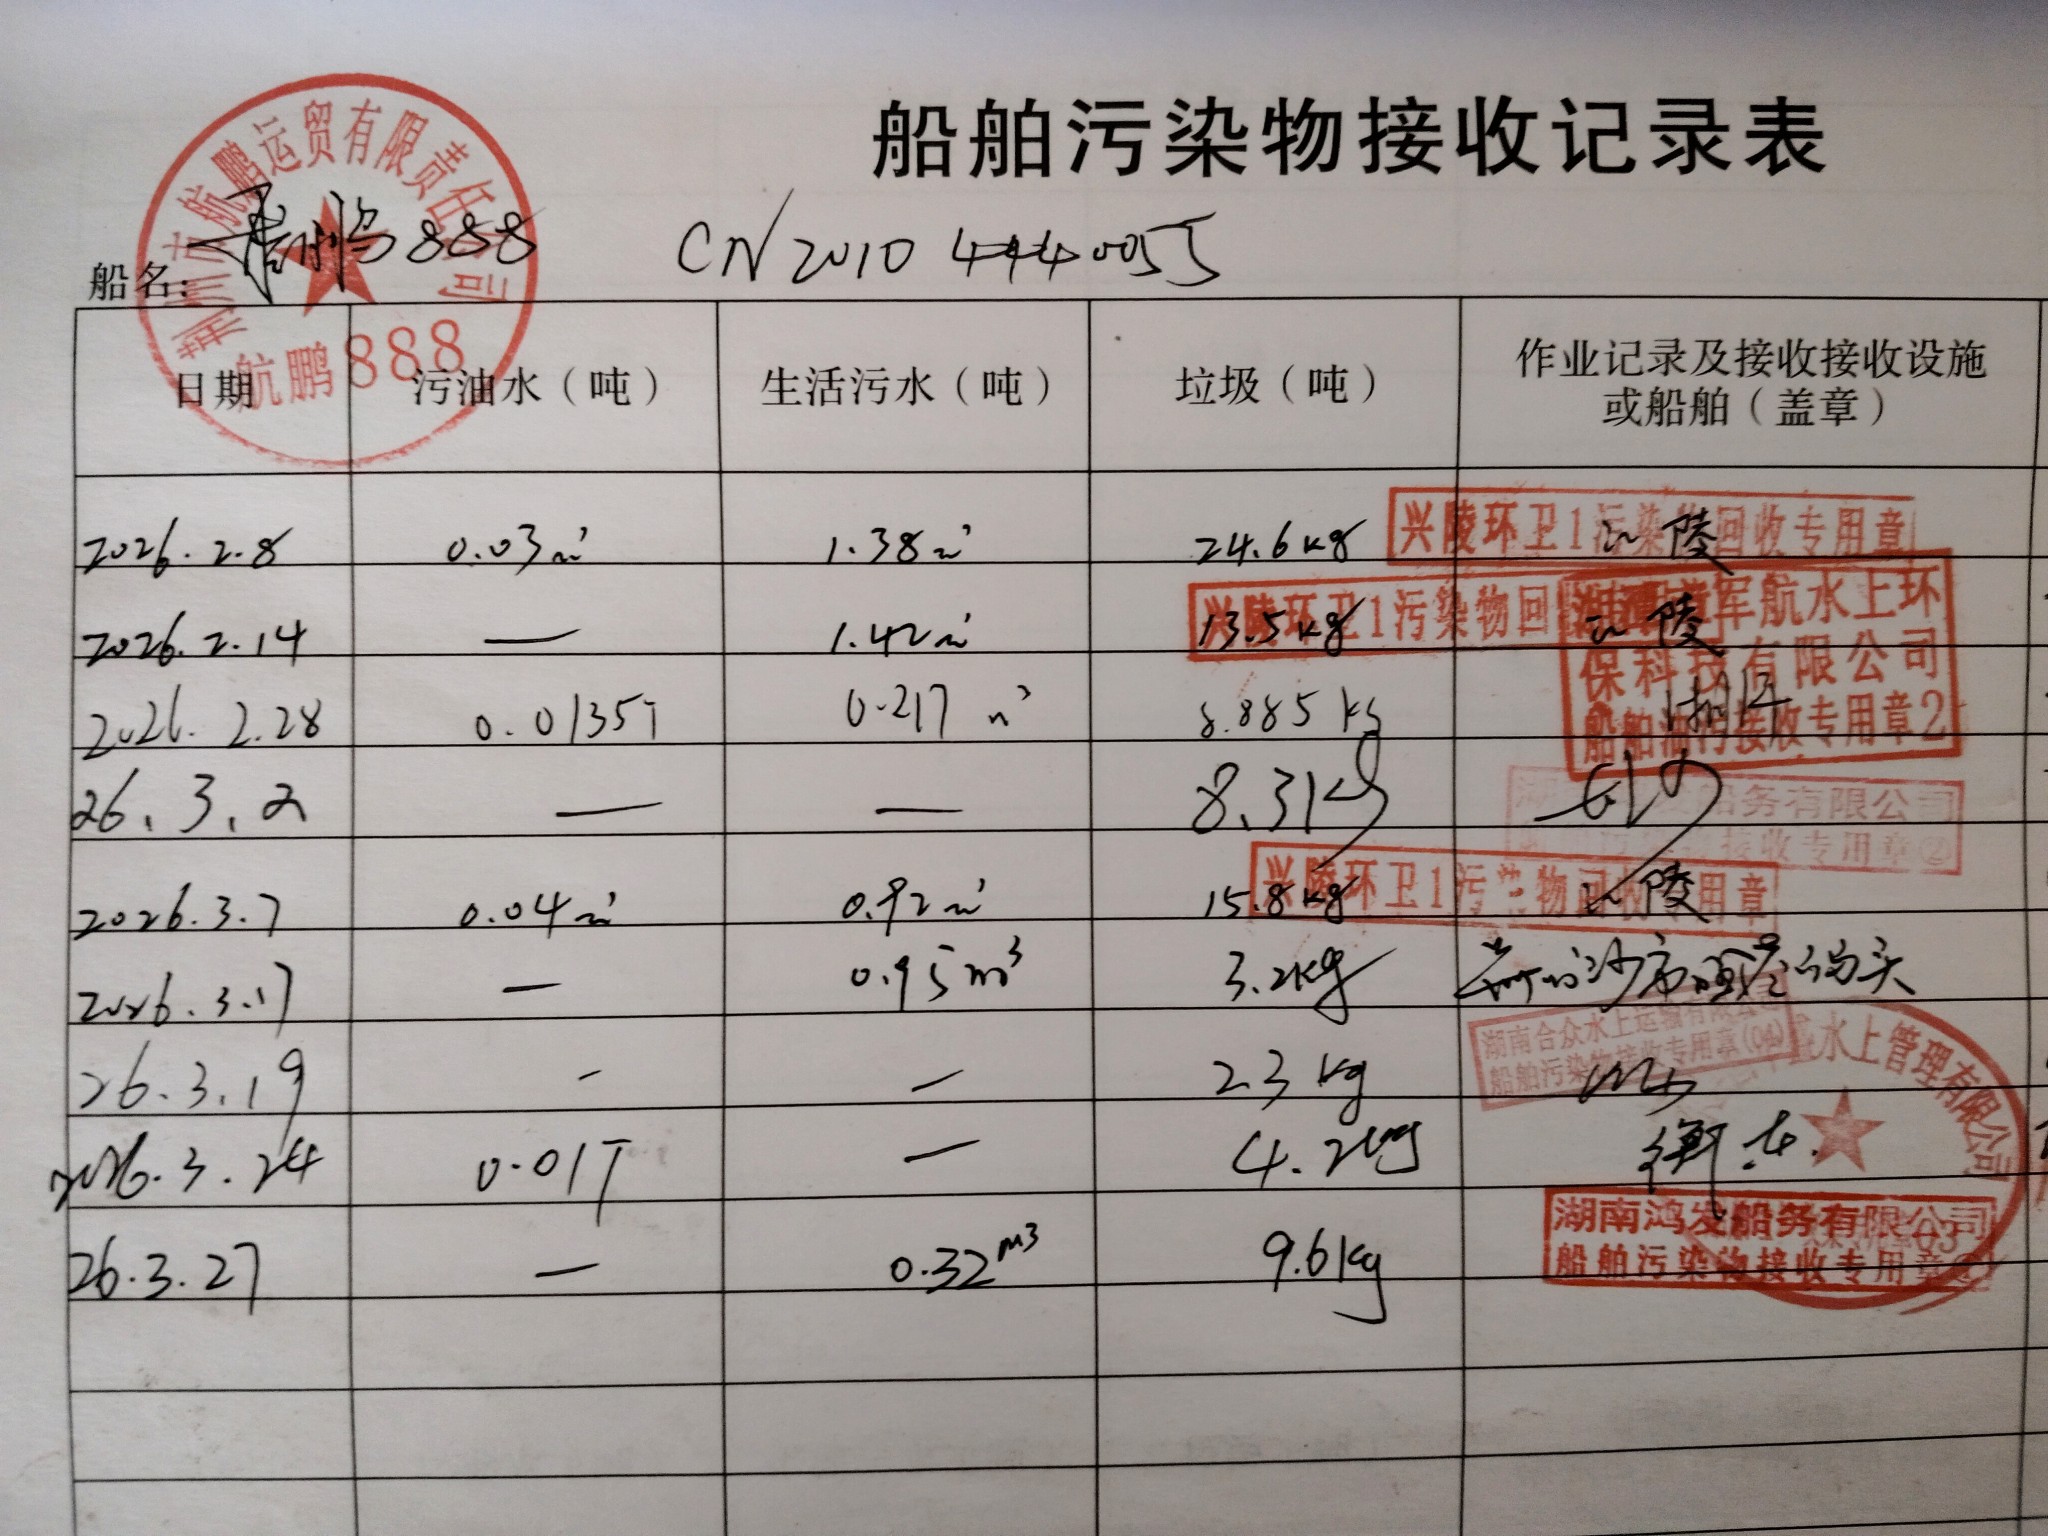 船舶污染物接收记录表
荆州市航鹏运贸有限责任公司
航鹏888
船名: 888 CN20104440055
日期 污油水（吨） 生活污水（吨） 垃圾（吨） 作业记录及接收接收设施
或船舶（盖章）
2026.2.8 0.03m³ 1.38m³ 24.6kg 江陵
兴陵环卫1污染物回收专用章
2026.2.14 — 1.42m³ 13.5kg 江陵
兴陵环卫1污染物回
军航水上环
保科技有限公司
船舶油污接收专用章2
2026.2.28 0.0135T 0.217m³ 8.885kg
26.3.2 — — 8.31kg
船务有限公司
污染物接收专用章②
2026.3.7 0.04m³ 0.92m³ 15.8kg 江陵
兴陵环卫1污染物回收专用章
2026.3.17 — 0.95m³ 3.2kg 码头
湖南合众水上运输有限公司
船舶污染物接收专用章(04)
26.3.19 - — 2.3kg
水上管理有限公司
2026.3.24 0.01T — 4.2kg
26.3.27 — 0.32m³ 9.6kg
湖南鸿发船务有限公司
船舶污染物接收专用章